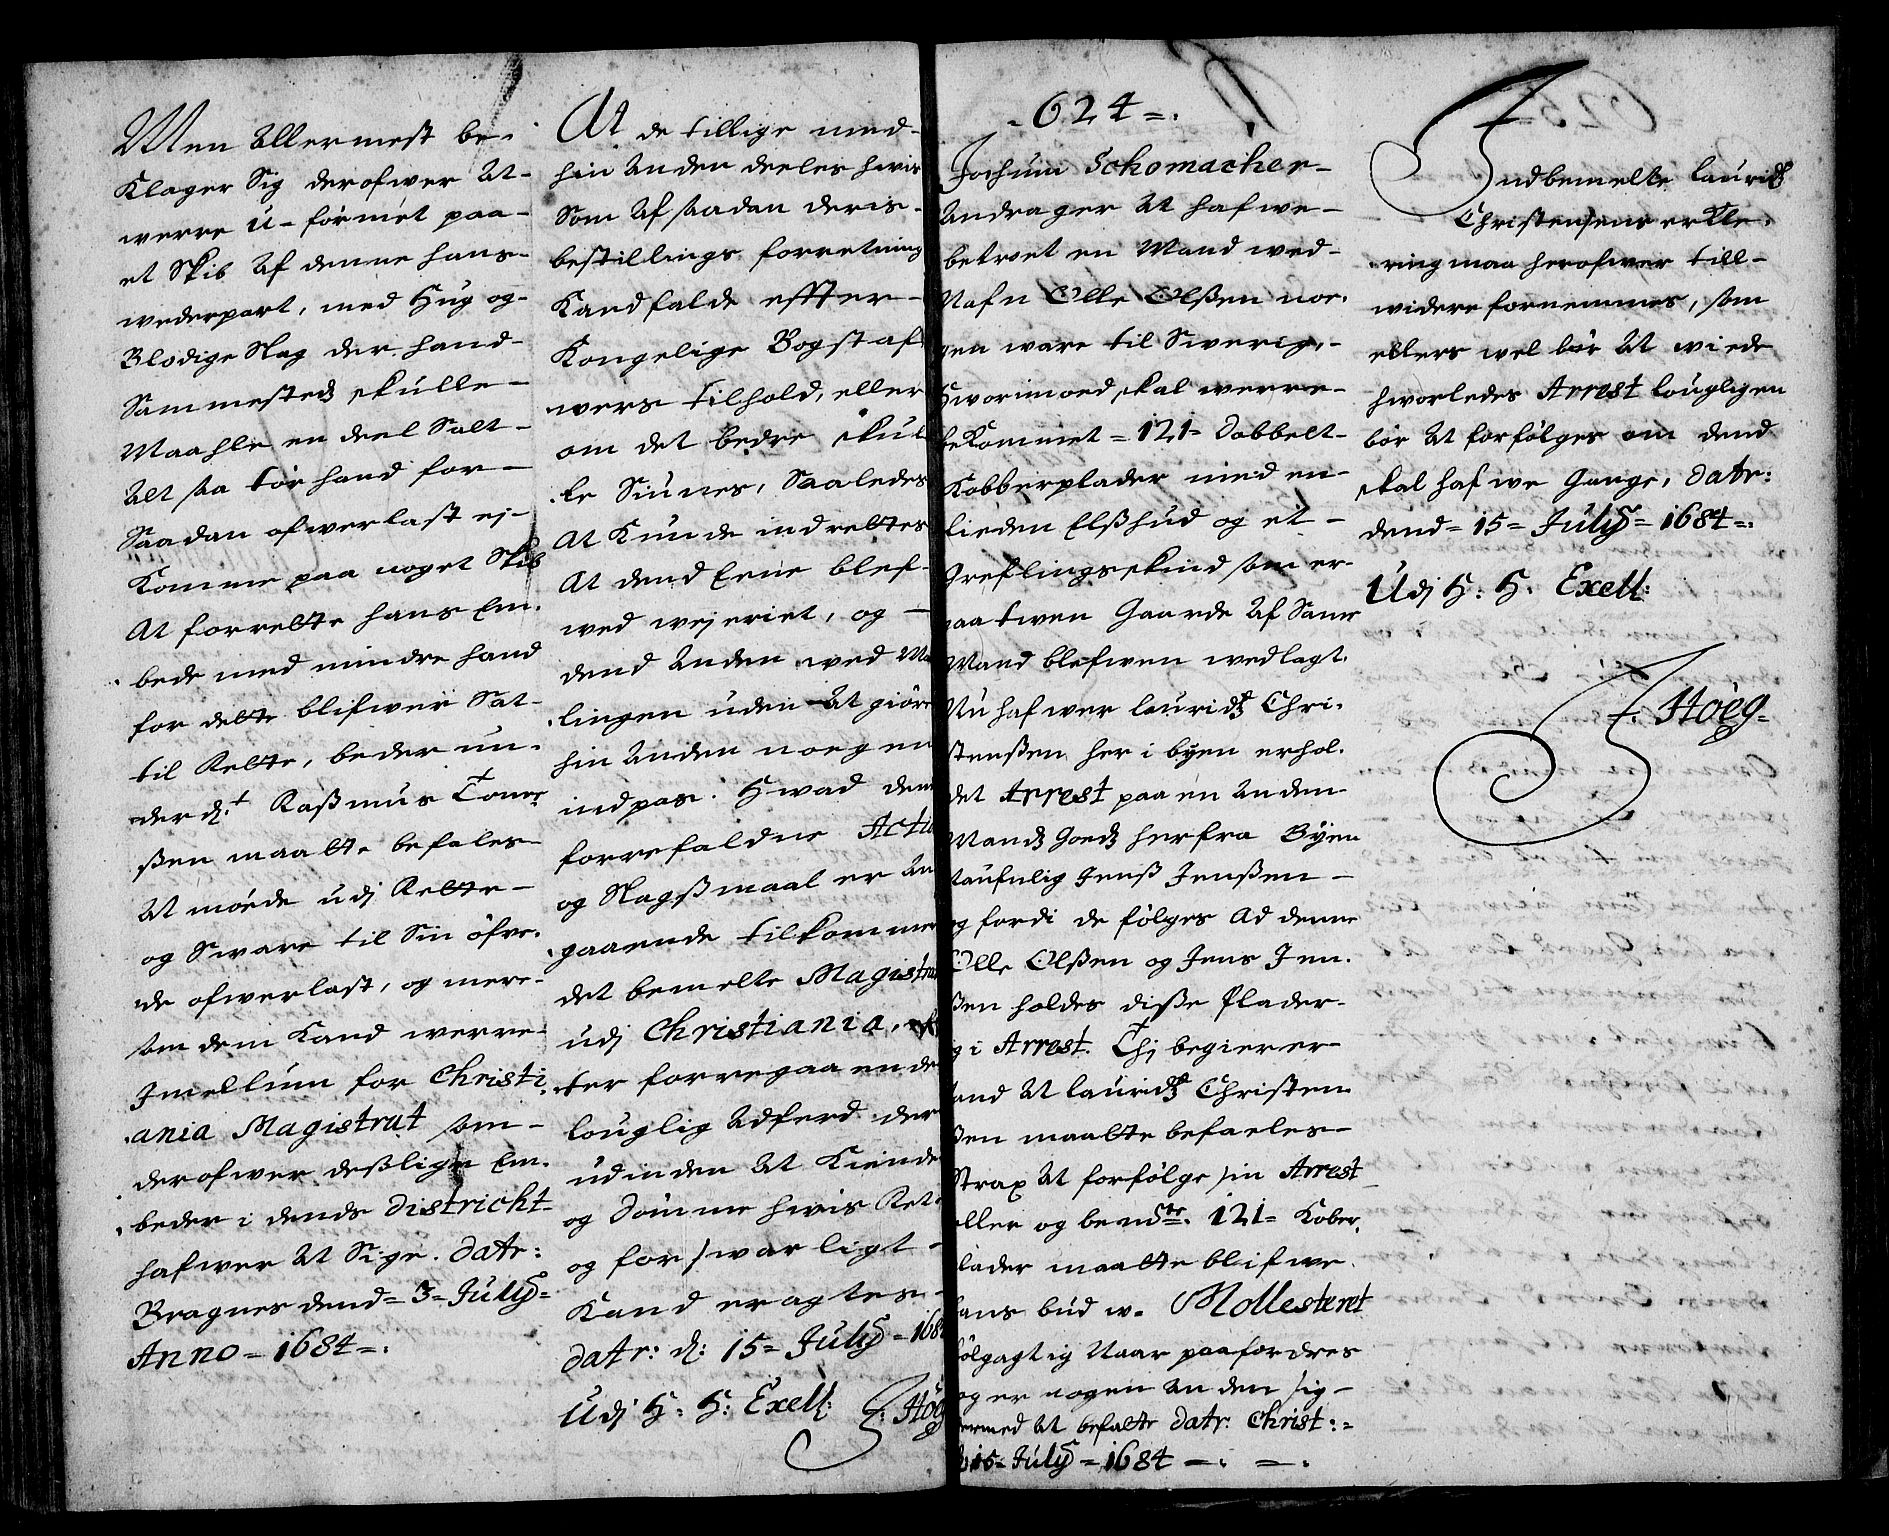 Men Allermest be-
Klager Sig derofwer At
werre u-formet paa-
et Skib Af denne hans-
wederpart, med Hug og-
Blodige Slag der hand-
Sammesteds skulle-
Maahle en deel Salt-
Alt saa tør hand for-
Saadan ofwerlast ej-
Komme paa noget Skib
At forrette hans Em-
bede med mindre hand
for dette blifwer Sat-
til Rette, beder un-
der d:t Rasmus Tøner
ßen maatte befales
At møede udj Rette-
og Sware til Sin øfwe-
de ofwerlast, og mere-
som dem Kand werre-
Jmellum for Christi
ania Magistrat som-
derofwer deßlige Em-
beder i dends districht
hafwer At Sige. datr:
Bragnes dend= 3= Julij=
Anno= 1684=.
At de tillige med-
hin Anden deeles hwis
Som Af saadan deris-
bestillings forretning
Kandfalde effter-
Kongelige Bogstaf
wers tilhold, eller
om det bedre skul
le Siunes, Saaledes
At Kunde indrettes
At dend Eene blef-
wed wejeriet, og-
dend Anden wed Ma
lingen uden At giøre
hin Anden noegen
indpas. Hwad dem
forrefaldne Actio
og Slagßmaal er An
gaaende tilkommer
det bemelte Magistrat
udj Christiania, ef
ter forregaaende
louglig Adferd der
udinden At Kiende
og Dømme hwis Ret
og forswarligt-
Kand eragtes-
datr: d: 15= Julij= 1684
Udj H: H: Exell: J: Høeg
-624=.
Jochum Schomacher-
Andrager At hafwe-
betroet en Mand wed-
Nafn Olle Olßen noe-
gen ware til Swerig,-
Hworimoed skal werre-
bekommet= 121= Dobbelt-
Kobberplader med en-
lieden Elßhud og et-
Greflingsskind som er-
paa twen Gaarde Af Samme
Mand blefwen wedlagt.
Nu hafwer lauridß Chri-
stenßen her i byen erhol-
det Arrest paa en Anden-
Mands Goeds herfra Byen
Naufnlig Jenß Jenßen-
og fordi de følges Ad denne
Olle Olßen og Jens Jen-
ßen holdes diße Plader-
og i Arrest. Thj begierer-
hand At lauridß Christen
ßen maatte befaeles-
Strax At forfølge sin Arrest
eller og bemelte 121= Kober
plader maatte blifwe
hans bud u- Mollesteret
følgagtig Naar paafordres
og er nogen Anden sig-
hermed At befatte datr: Christ:=
d: 15= Julij= 1684 -. -.
Jndbemelte lauridß
Christensens erkle-
ring maa herofwer till-
widere fornemmes, som
ellers wel bør At wiede
hworledes Arrest lougligen
bør At forfølges om dend
skal hafwe Gange, datr:
dend= 15= Julij= 1684=.
Udj H: H: Exell:
J: Høeg=